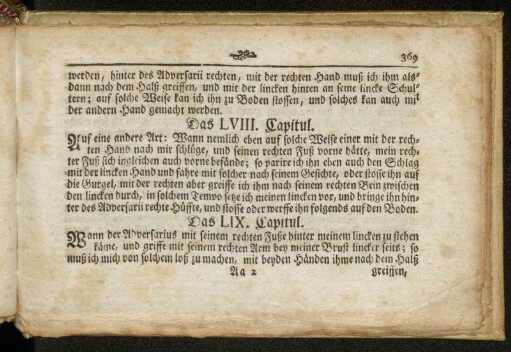 369
werden, hinter des Adversarii rechten, mit der rechten Hand muß ich ihm als-
dann nach dem Halß greiffen, und mit der lincken hinten an seine lincke Schul-
tern; auf solche Weise kan ich ihn zu Boden stossen, und solches kan auch mit
der andern Hand gemacht werden.
Das LVIII. Capitul.
Auf eine andere Art: Wann nemlich eben auf solche Weise einer mit der rech-
ten Hand nach mir schlüge, und seinen rechten Fuß vorne hätte, mein rech-
ter Fuß sich ingleichen auch vorne befände; so parire ich ihn eben auch den Schlag
mit der lincken Hand und fahre mit solcher nach seinem Gesichte, oder stosse ihn auf
die Gurgel, mit der rechten aber greiffe ich ihm nach seinem rechten Bein zwischen
den lincken durch, in solchem Tempo setze ich meinen lincken vor, und bringe ihn hin-
ter des Adversarii rechte Hüffte, und stosse oder werffe ihn folgends auf den Boden.
Das LIX. Capitul.
Wann der Adversarius mit seinem rechten Fuße hinter meinem lincken zu stehen
käme, und griffe mit seinem rechten Arm bey meiner Brust lincker seits; so
muß ich mich von solchem loß zu machen, mit beyden Händen ihme nach dem Halß
Aa 2 greiffen,